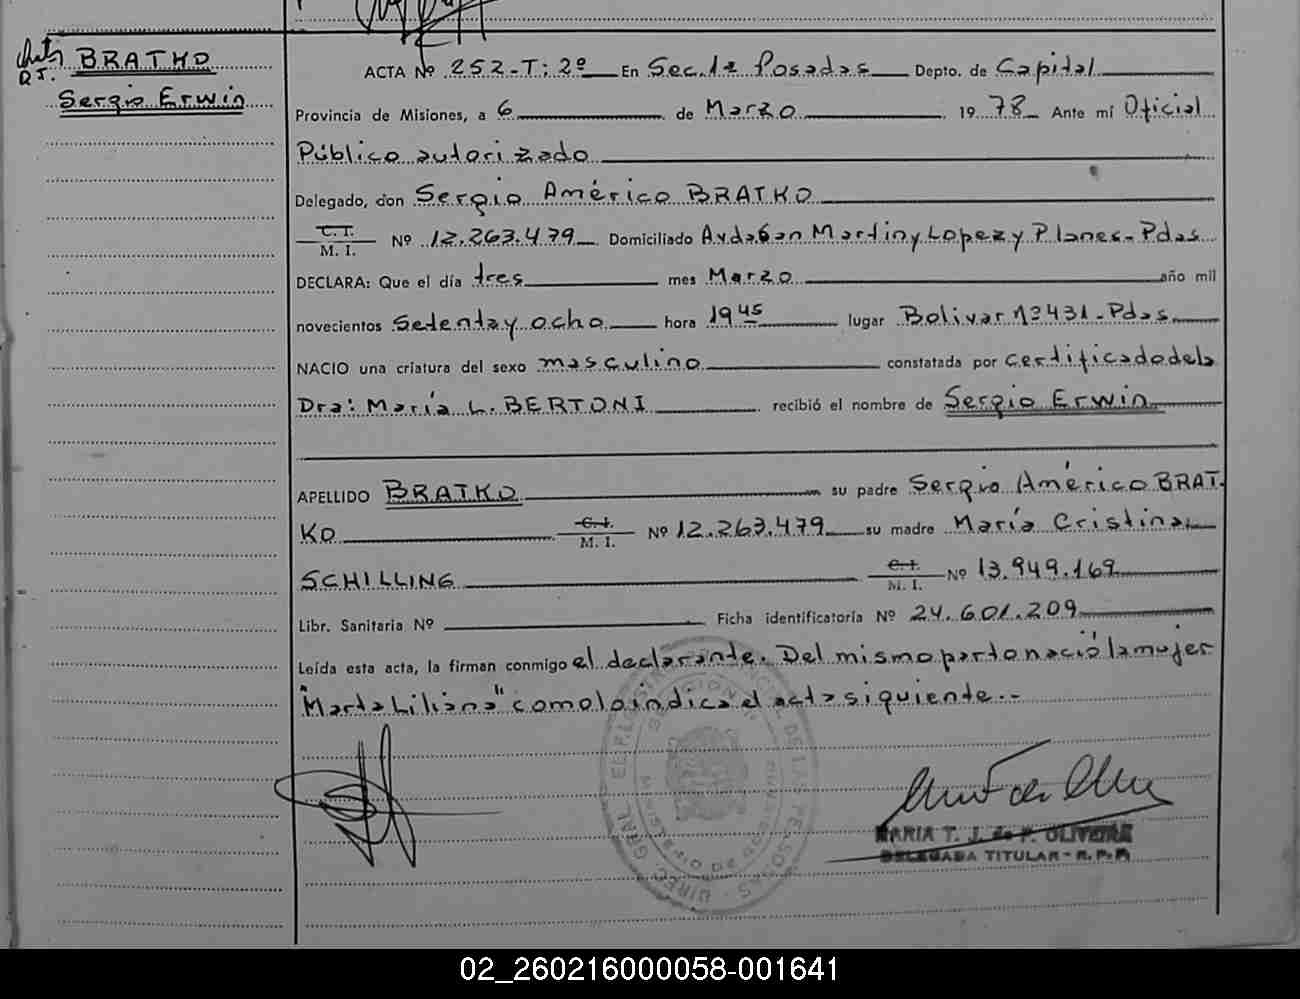 BRATKO
Sergio Erwin
ACTA Nº 252-T: 2º En Sec. 1a Posadas Depto. de Capital
Provincia de Misiones, a 6 de Marzo 19 78 Ante mí Oficial
Público autorizado
Delegado, don Sergio Américo BRATKO
C. I.
M. I. Nº 12.263.479 Domiciliado Avda San Martin y Lopez y Planes - Pdas
DECLARA: Que el día tres mes Marzo año mil
novecientos Setenta y ocho hora 19 45 lugar Bolivar Nº 431 - Pdas
NACIO una criatura del sexo masculino constatada por certificado de la
Dra: María L. BERTONI recibió el nombre de Sergio Erwin
APELLIDO BRATKO su padre Sergio Américo BRAT-
KO C. I. M. I. Nº 12.263.479 su madre María Cristina
SCHILLING C. I. M. I. Nº 13.949.169
Libr. Sanitaria Nº Ficha identificatoria Nº 24.601.209
Leída esta acta, la firman conmigo el declarante. Del mismo parto nació la mujer
"Marta Liliana" como lo indica el acta siguiente.-
MARIA T. J. de P. OLIVEIRA
DELEGADA TITULAR - R. P. P.
02_260216000058-001641